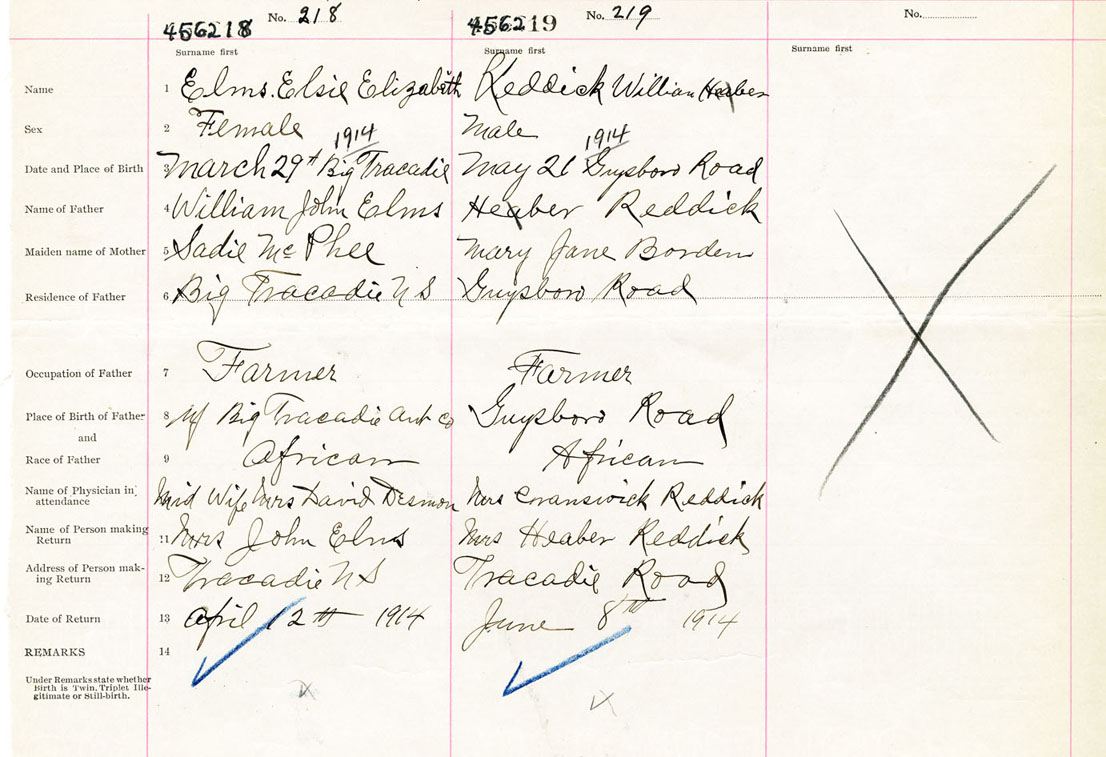 No. 218 No. 219 No.
456218 456219
Surname first Surname first Surname first
Name 1 Elms. Elsie Elizabeth Reddick William Heaber
Sex 2 Female Male
1914 1914
Date and Place of Birth 3 March 29th Big Tracadie May 21 Guysboro Road
Name of Father 4 William John Elms Heaber Reddick
Maiden name of Mother 5 Sadie McPhee Mary Jane Borden
Residence of Father 6 Big Tracadie N S Guysboro Road
Occupation of Father 7 Farmer Farmer
Place of Birth of Father 8 Big Tracadie Ant Co Guysboro Road
and
Race of Father 9 African African
Name of Physician in attendance Mid Wife Mrs David Desmon Mrs Reddick
Name of Person making Return 11 Mrs John Elms Mrs Heaber Reddick
Address of Person mak-ing Return 12 Tracadie N S Tracadie Road
Date of Return 13 April 12th 1914 June 8th 1914
REMARKS 14
Under Remarks state whether
Birth is Twin, Triplet Ille-
gitimate or Still-birth.